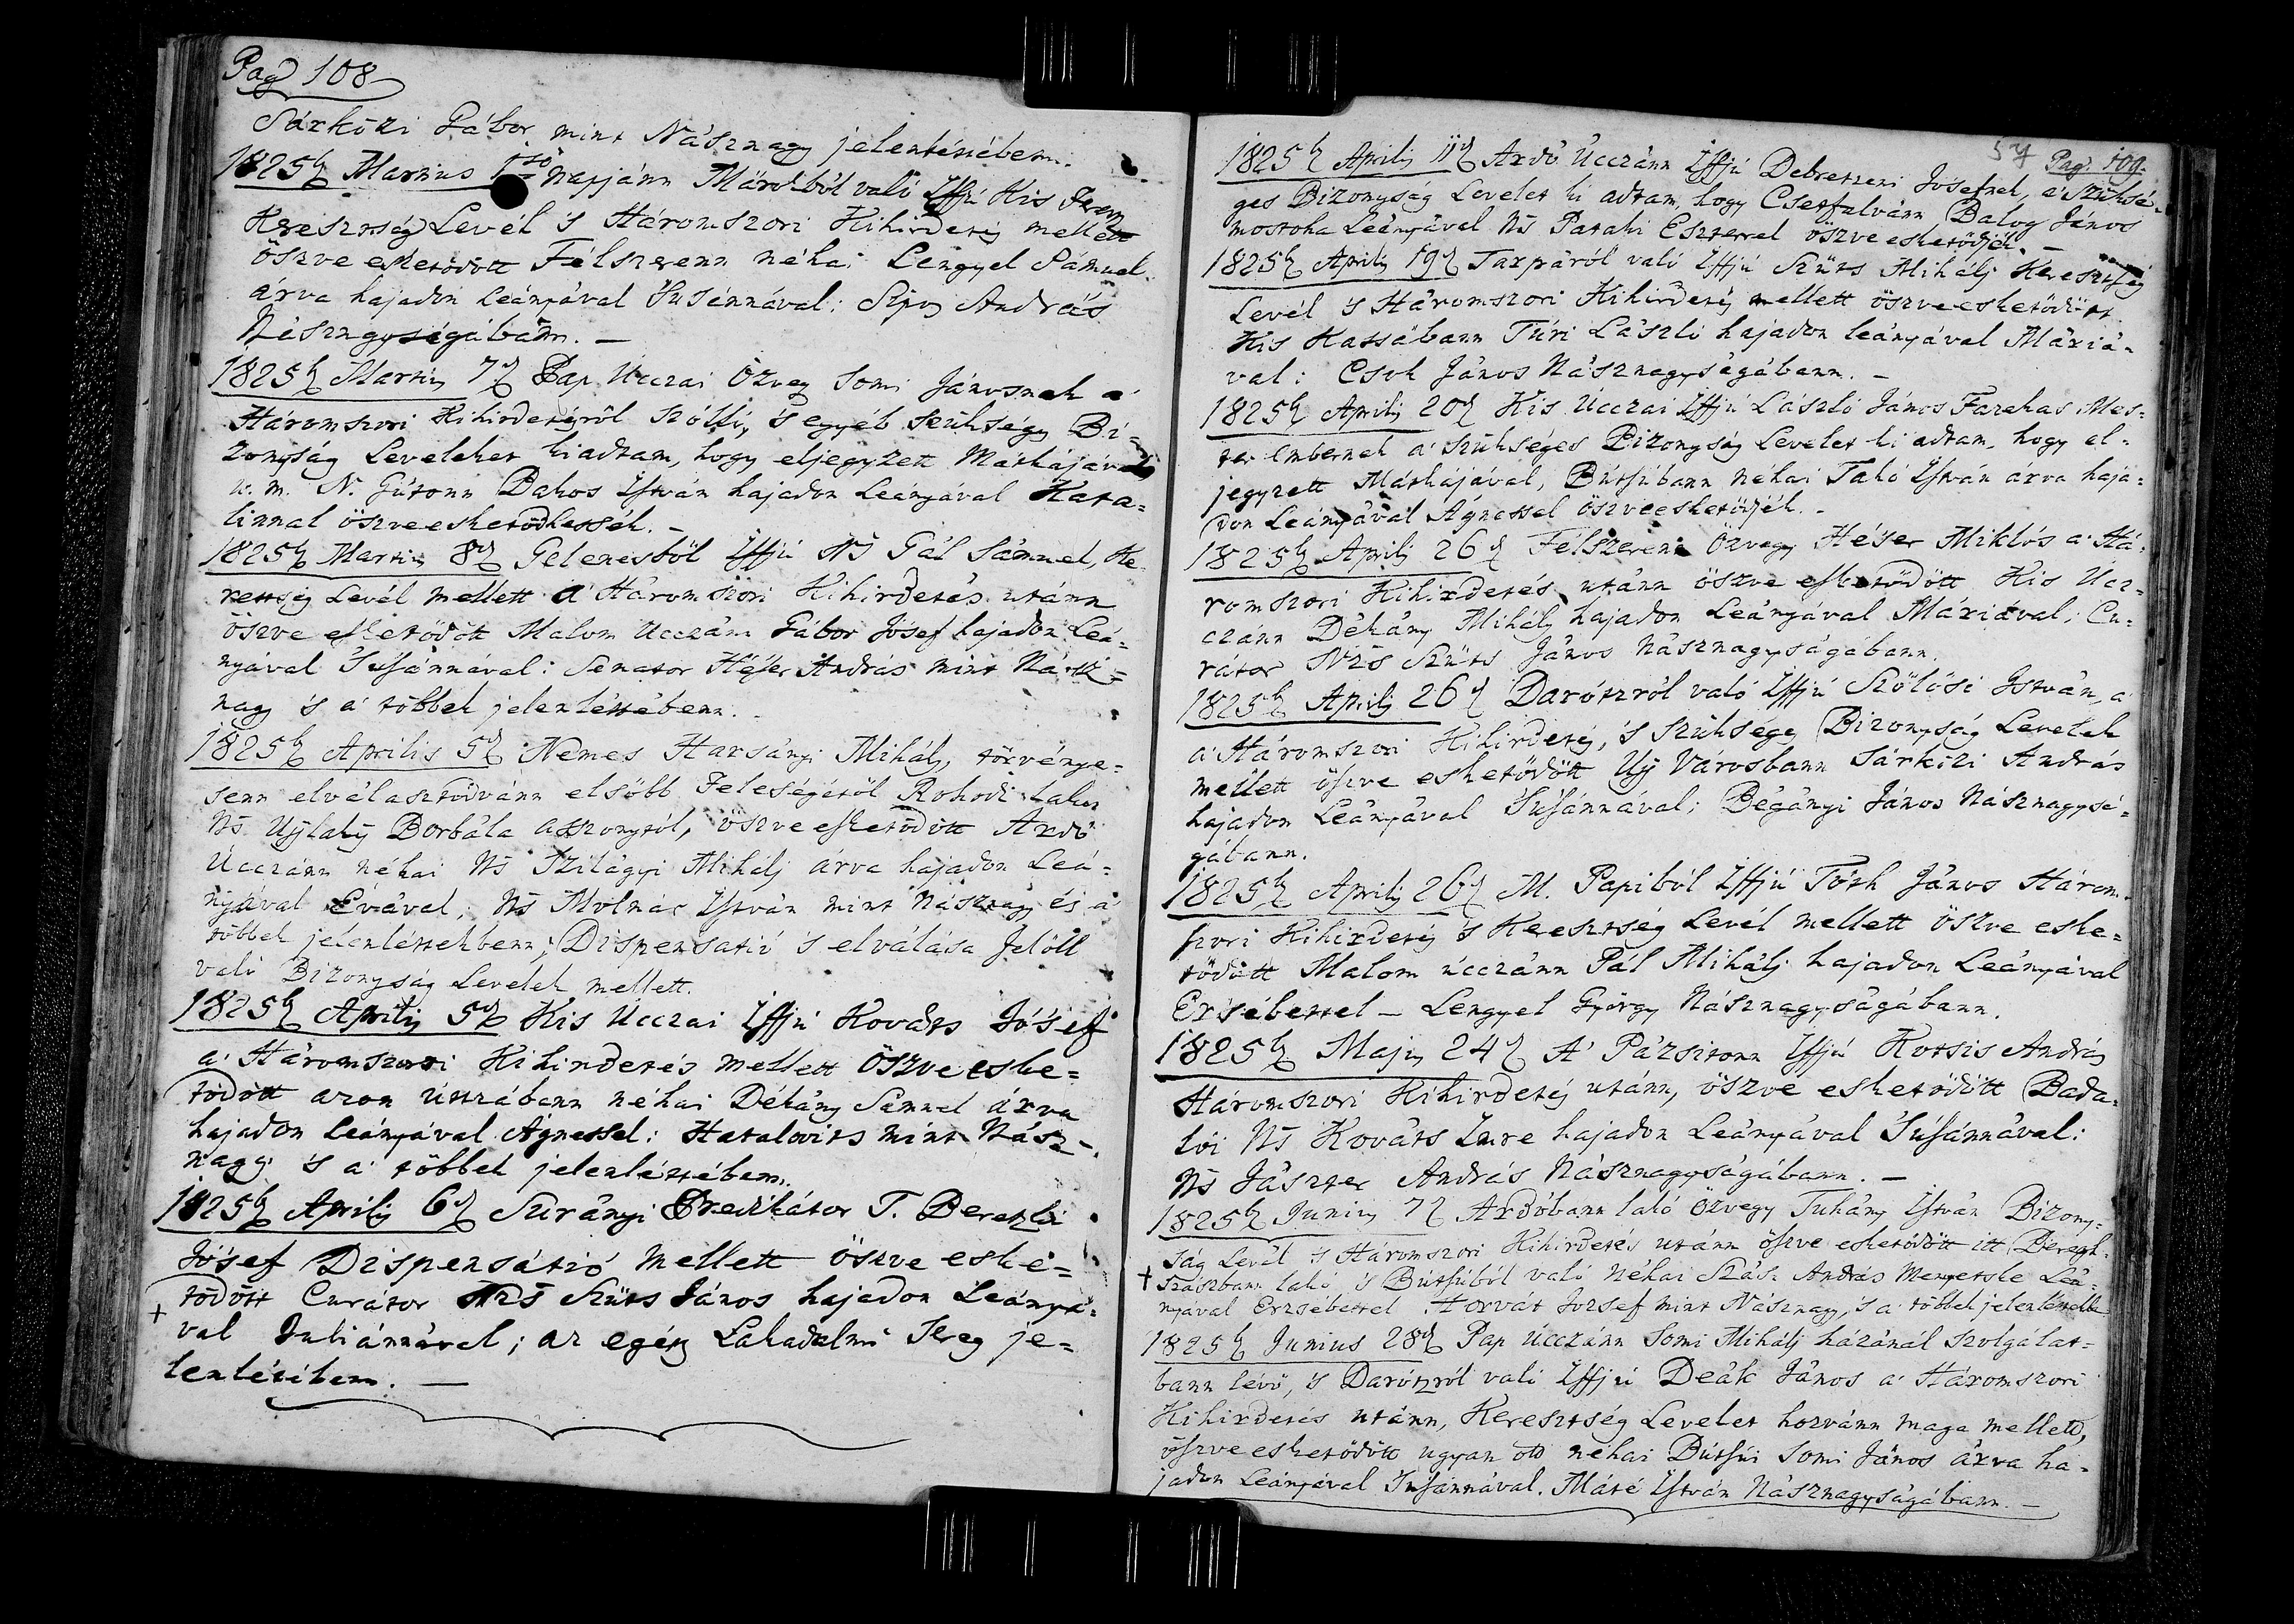 Pag 108
Sárközi Gábor mint Násznagy jelentésébenn.
1825b Martius 1ső Napjánn Márokból való Iffjú Kis Ferentz
Keresztség Levél 's Háromszori Kihirdetés mellett
öszve esketödött Félszerenn néhai Lengyel Sámuel
árva hajadon leányával 'Susánnával: Sipos András
Násznagyságábann. —
1825b Martius 7d Pap Ucczai Özvegy Somi Jánosnak a'
Háromszori Kihirdetésről szólló, 's egyéb szükséges Bi-
zonyság Leveleket kiadtam, hogy eljegyzett Mátkájával
u. m. N. Gútonn Bakos István hajadon Leányával Kata=
linnal öszveesketödhessék. —
1825b Martius 8d Gelenesből Iffjú Ns Pál Sámuel, Ke
resttség Levél mellett a' Háromszori Kihirdetés utánn
öszve esketödött Malom Ucczánn Gábor Jósef hajadon Leá-
nyával 'Susánnával: Senator Héjer András mint Nász=
nagy 's a' többek jelenléttébenn.
1825b Aprilis 5d Nemes Harsányi Mihály, törvénye=
senn elválasztódvánn elsőbb Feleségétől Rohodi lakos
Ns. Ujlaky Borbála Asszonytól, öszveesketödött Ardó
Ucczánn néhai Ns Szilágyi Mihály árva hajadon Leá-
nyával Évával; Ns Molnár István mint Násznagy és a'
többek jelenléttekbenn; Dispensatió 's elválása felöll
való Bizonyság Levelek mellett.
1825b Aprilis 5d Kis Ucczai Iffjú Kováts Jó'sef
a' Háromszori Kihirdetés mellett öszveeske=
tödött azon útszábann néhai Dékány Sámuel árva
hajadon Leányával Ágnessel: Hatalovits mint Nász-
nagy 's a' többek jelenléttében.
1825b Aprilis 6d Surányi Prédikátor T. Bereczki
Jósef Dispensátió mellett öszve eske=
tödött Curátor Nzs Szüts János hajadon Leányá-
+
val Juliánnával; az egész Lakadalmi Sereg je=
lenlétében. —
57 Pag. 109.
1825b Aprilis 11d Ardó Ucczánn Iffjú Debretzeni Jósefnek, a' szüksé-
ges Bizonyság Levelet ki adtam, hogy Csetfalvánn Balog János
mostoha Leányával Ns Pataki Eszterrel öszveesketödjék. —
1825b Aprilis 19d Tarpáról való Iffjú Szüts Mihály Keresztség
Levél 's Háromszori Kihirdetés mellett öszveesketödött
Kis Kassábann Túri László hajadon leányával Máriá-
val: Csok János Násznagyságábann. —
1825b Aprilis 20d Kis Ucczai Iffjú László János Fazekas Mes=
ter Embernek a' szükséges Bizonyság Levelet ki adtam, hogy el-
jegyzett Mátkájával, Bútsúbann néhai Takó István árva haja=
don Leányával Ágnessel öszveesketödjék. -
1825b Aprilis 26d Félszereni Özvegy Héjer Miklós a' Há-
romszori Kihirdetés utánn öszve esketödött Kis Ucz-
czánn Dékány Mihály hajadon Leányával Máriával; Cu-
rátor Nzs Szüts János Násznagyságábann.
1825b Aprilis 26d Darótzról való Iffjú Szölösi István, a'
a' Háromszori Kihirdetés, 's szükséges Bizonyság Levelek
mellett öszve esketödött Uj Városbann Sárközi András
hajadon Leányával 'Susánnával; Bégányi János Násznagysá-
gábann.
1825b Aprilis 26d M. Papiból Iffjú Tóth János Három-
szori Kihirdetés 's Keresztség Levél mellett öszve eske=
tödött Malom ucczánn Pál Mihály hajadon Leányával
Er'sébettel — Lengyel György Násznagyságábann.
1825b Majus 24d A' Pá'sitonn Iffjú Kotsis András
Háromszori Kihirdetés utánn, öszve esketödött Bada-
lói Ns Kováts Imre hajadon Leányával 'Susánnával:
Ns Jászter András Násznagyságábann. —
1825b Junius 7d Ardóbann lakó Özvegy Tukány István Bizony=
ság Levél 's Háromszori Kihirdetés utánn öszve esketödött itt Beregh-
+ Szászbann lakó 's Bútsúból való néhai Szász András Menyetske Leá-
nyával Erzsébettel. Horvát József mint Násznagy, 's a' többek jelenléttekb
1825b Junius 28d Pap Ucczánn Somi Mihály házánál szolgálat=
bann lévő, 's Darótzról való Iffjú Deák János a' Háromszori
Kihirdetés utánn, Keresztség Levelet hozvánn maga mellett,
öszveesketödött ugyan ott néhai Bútsúi Somi János árva ha-
jadon Leányával 'Susánnával. Máté István Násznagyságábann. —